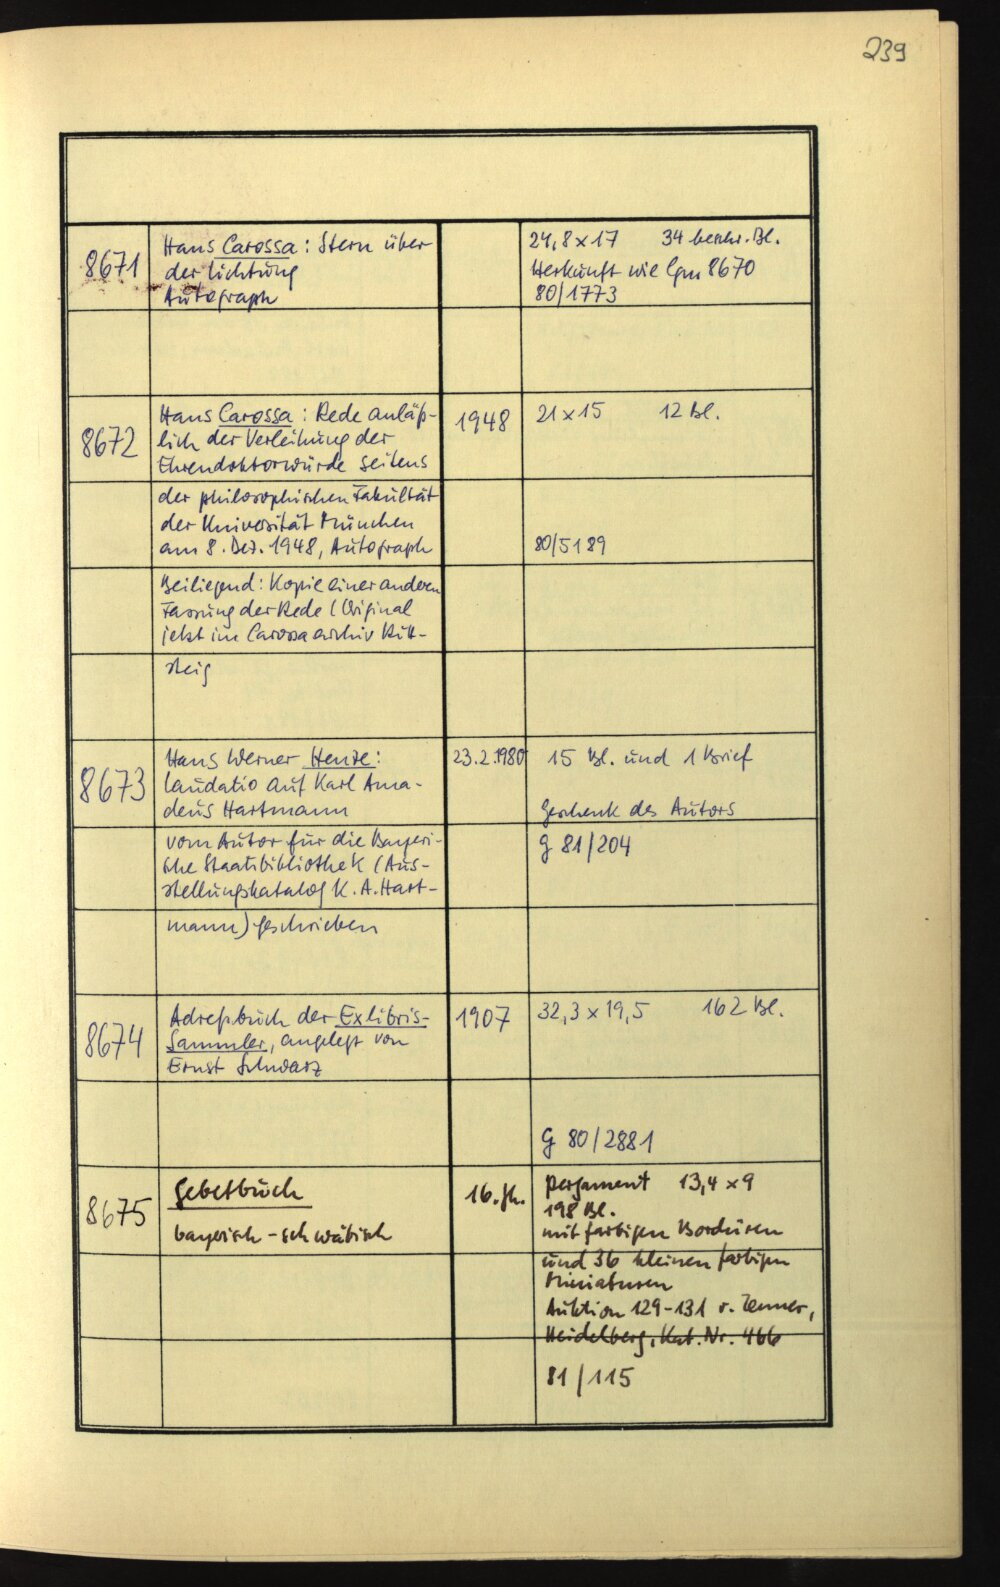 239
8671
Hans Carossa: Stern über
der Lichtung
Autograph
24,8 x 17 34 beschr. Bl.
Herkunft wie Cgm 8670
80/1773
8672
Hans Carossa: Rede anläß-
lich der Verleihung der
Ehrendoktorwürde seitens
der philosophischen Fakultät
der Universität München
am 8. Dez. 1948, Autograph
Beiliegend: Kopie einer anderen
Fassung der Rede (Original
jetzt im Carossaarchiv Ritt-
steig
1948
21 x 15 12 Bl.
80/5189
8673
Hans Werner Henze:
Laudatio auf Karl Ama-
deus Hartmann
vom Autor für die Bayeri-
sche Staatsbibliothek (Aus-
stellungskatalog K. A. Hart-
mann) geschrieben
23.2.1980
15 Bl. und 1 Brief
Geschenk des Autors
G 81/204
8674
Adreßbuch der Exlibris-
Sammler, angelegt von
Ernst Schwarz
1907
32,3 x 19,5 162 Bl.
G 80/2881
8675
Gebetbuch
bayerisch-schwäbisch
16. Jh.
Pergament 13,4 x 9
198 Bl.
mit farbigen Bordüren
und 36 kleinen farbigen
Miniaturen
Auktion 129-131 v. Zenner,
Heidelberg, Kat. Nr. 466
81/115